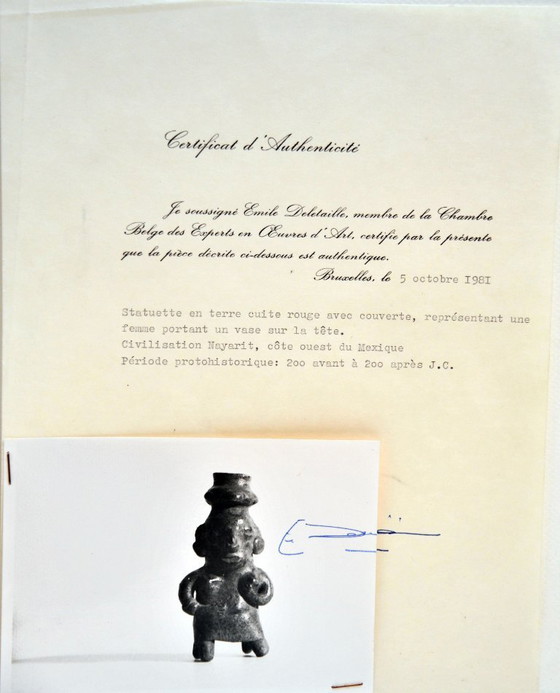 Certificat d'Authenticité
Je soussigné Emile Deletaille, membre de la Chambre
Belge des Experts en Œuvres d'Art, certifie par la présente
que la pièce décrite ci-dessous est authentique.
Bruxelles, le 5 octobre I98I
Statuette en terre cuite rouge avec couverte, représentant une
femme portant un vase sur la tête.
Civilisation Nayarit, côte ouest du Mexique
Période protohistorique: 2oo avant à 2oo après J.C.